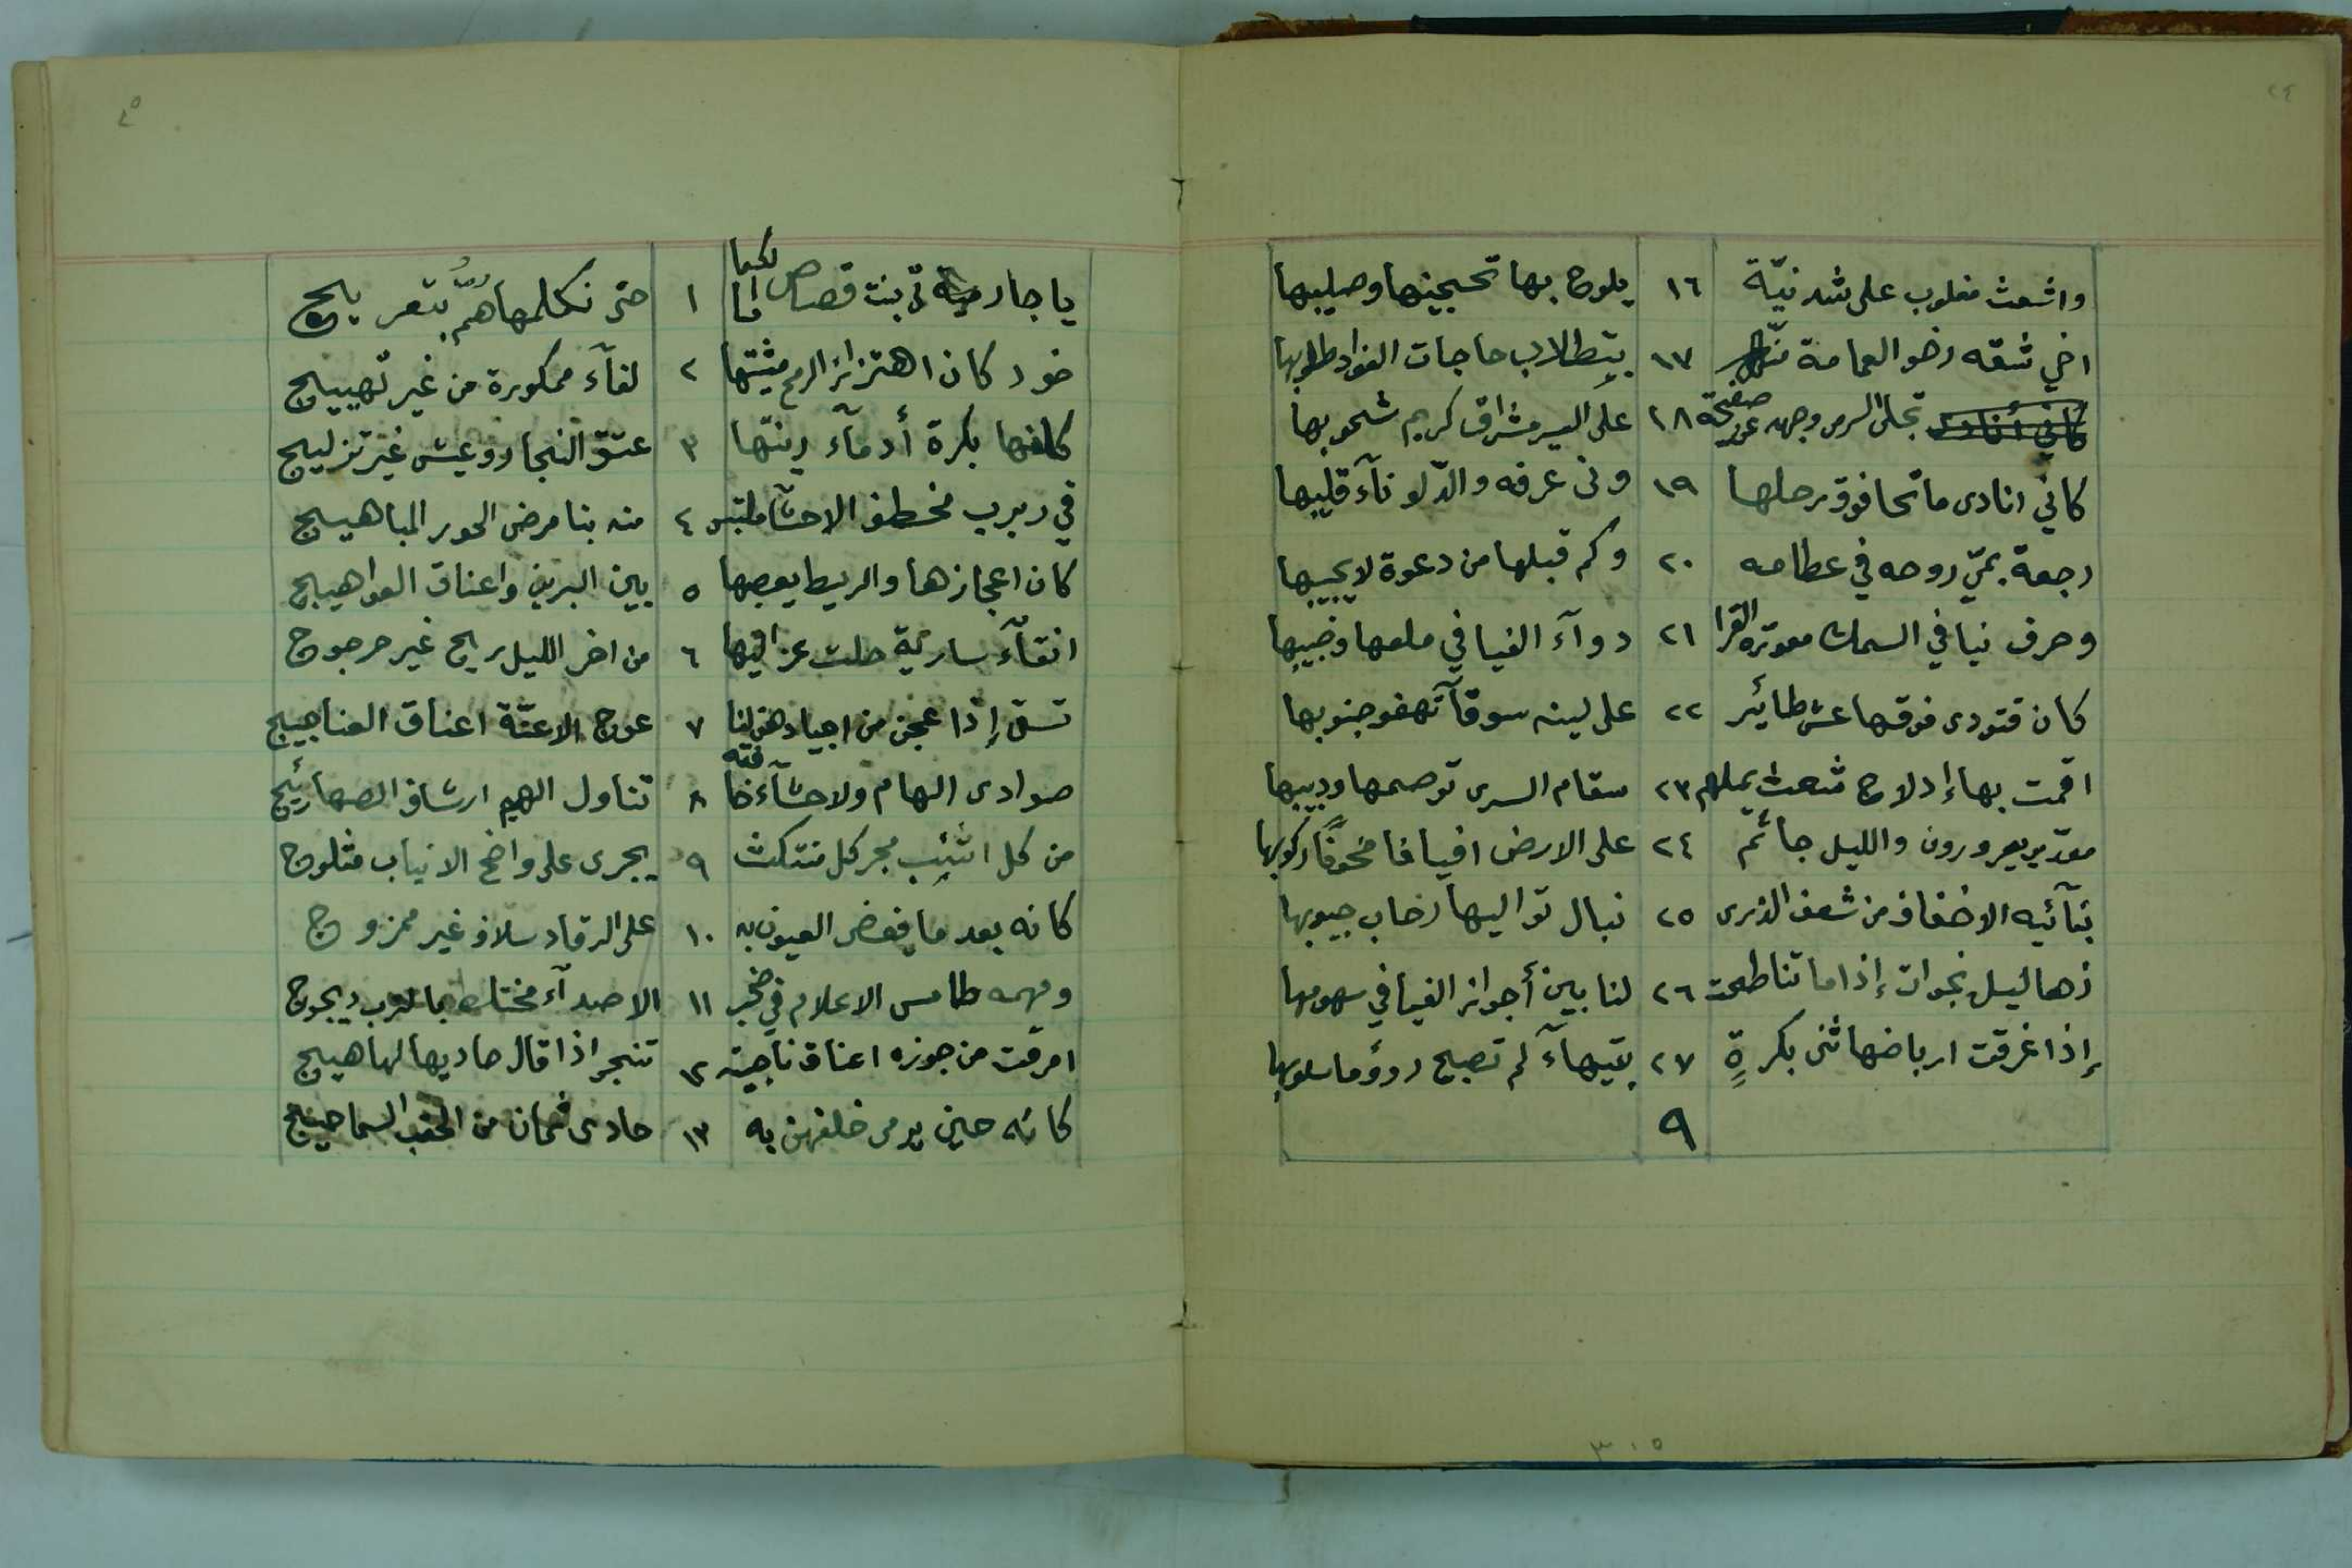 ٢٤
واشعث مغلوب على شدنيّة ١٦ يلوح بها تحجينها وصليبها
اخي شقه رخو العمامة ١٧ بتطلاب حاجات الفواد طلوبها
تجلى السرى وجهه عن صفيحة ١٨ على السير مشراق كريم شحوبها
كاني انادى ماتحا فوق رحلها ١٩ ونى غرفه والدّلو نآء قليبها
رجعة بمي روحه في عظامه ٢٠ وكم قبلها من دعوة لا يجيبها
وحرف نيافي السمك معورة القرا ٢١ دوآء الفيافي ملعها وخبيبها
كان قتودى فوقها عش طائر ٢٢ على لينه سوقآ تهفو جنوبها
اقمت بها إدلاج شعث يملهم ٢٣ سقام السرى توصيمها ودبيبها
يعرورون والليل جاثم ٢٤ على الارض افيافا مخوفًا ركوبها
بنآئيه الاخفاف من شعف الذرى ٢٥ نبال تواليها رحاب جيوبها
زهاليل نجوات إذا ما تناطحت ٢٦ لنا بين أجواز الفيافي سهوبها
إذا غرقت ارباضها ثنى بكرةٍ ٢٧ بتيهآء لم تصبح رؤوما سلوبها
٩
٢٥
يا جارتي بنت قصاص لكما ١ حتى نكلمها همُّ بتعريج
خود كان اهتزاز الرمح مشيتها ٢ لفآء ممكورة من غير تهييج
كانها بكرة أدمآء زينها ٣ عتق النجار وعيش غير تزليج
في ربرب مخطف الاحشا ملتبس ٤ منه بنا مرض الحور المباهيج
كان اعجازها والريط يعصبها ٥ بين البرين واعناق العواهيج
انقآء سارية حلت عزاليها ٦ من اخر الليل ريح غير حرجوج
تسقى إذا عجن من اجيادهن لنا ٧ عوج الاعنّة اعناق العناجيج
صوادى الهام ولاحشآء خافقه ٨ تناول الهيم ارشاف الصهاريج
من كل اشنب مجر كل منتكث ٩ يجرى على واضح الانياب مثلوج
كانه بعد ما يغضى العيون به ١٠ على الرقاد سلاف غير ممزوج
ومهمه طامس الاعلام في ١١ الاصدآء مختلط بالترب ديجوج
امرقت من جوزه اعناق ناجية ١٢ تنجو اذا قال حاديها لها هيج
كانه حين يرمى خلفهن به ١٣ حادى ثمان من الحقب السماحيج
٣١٥